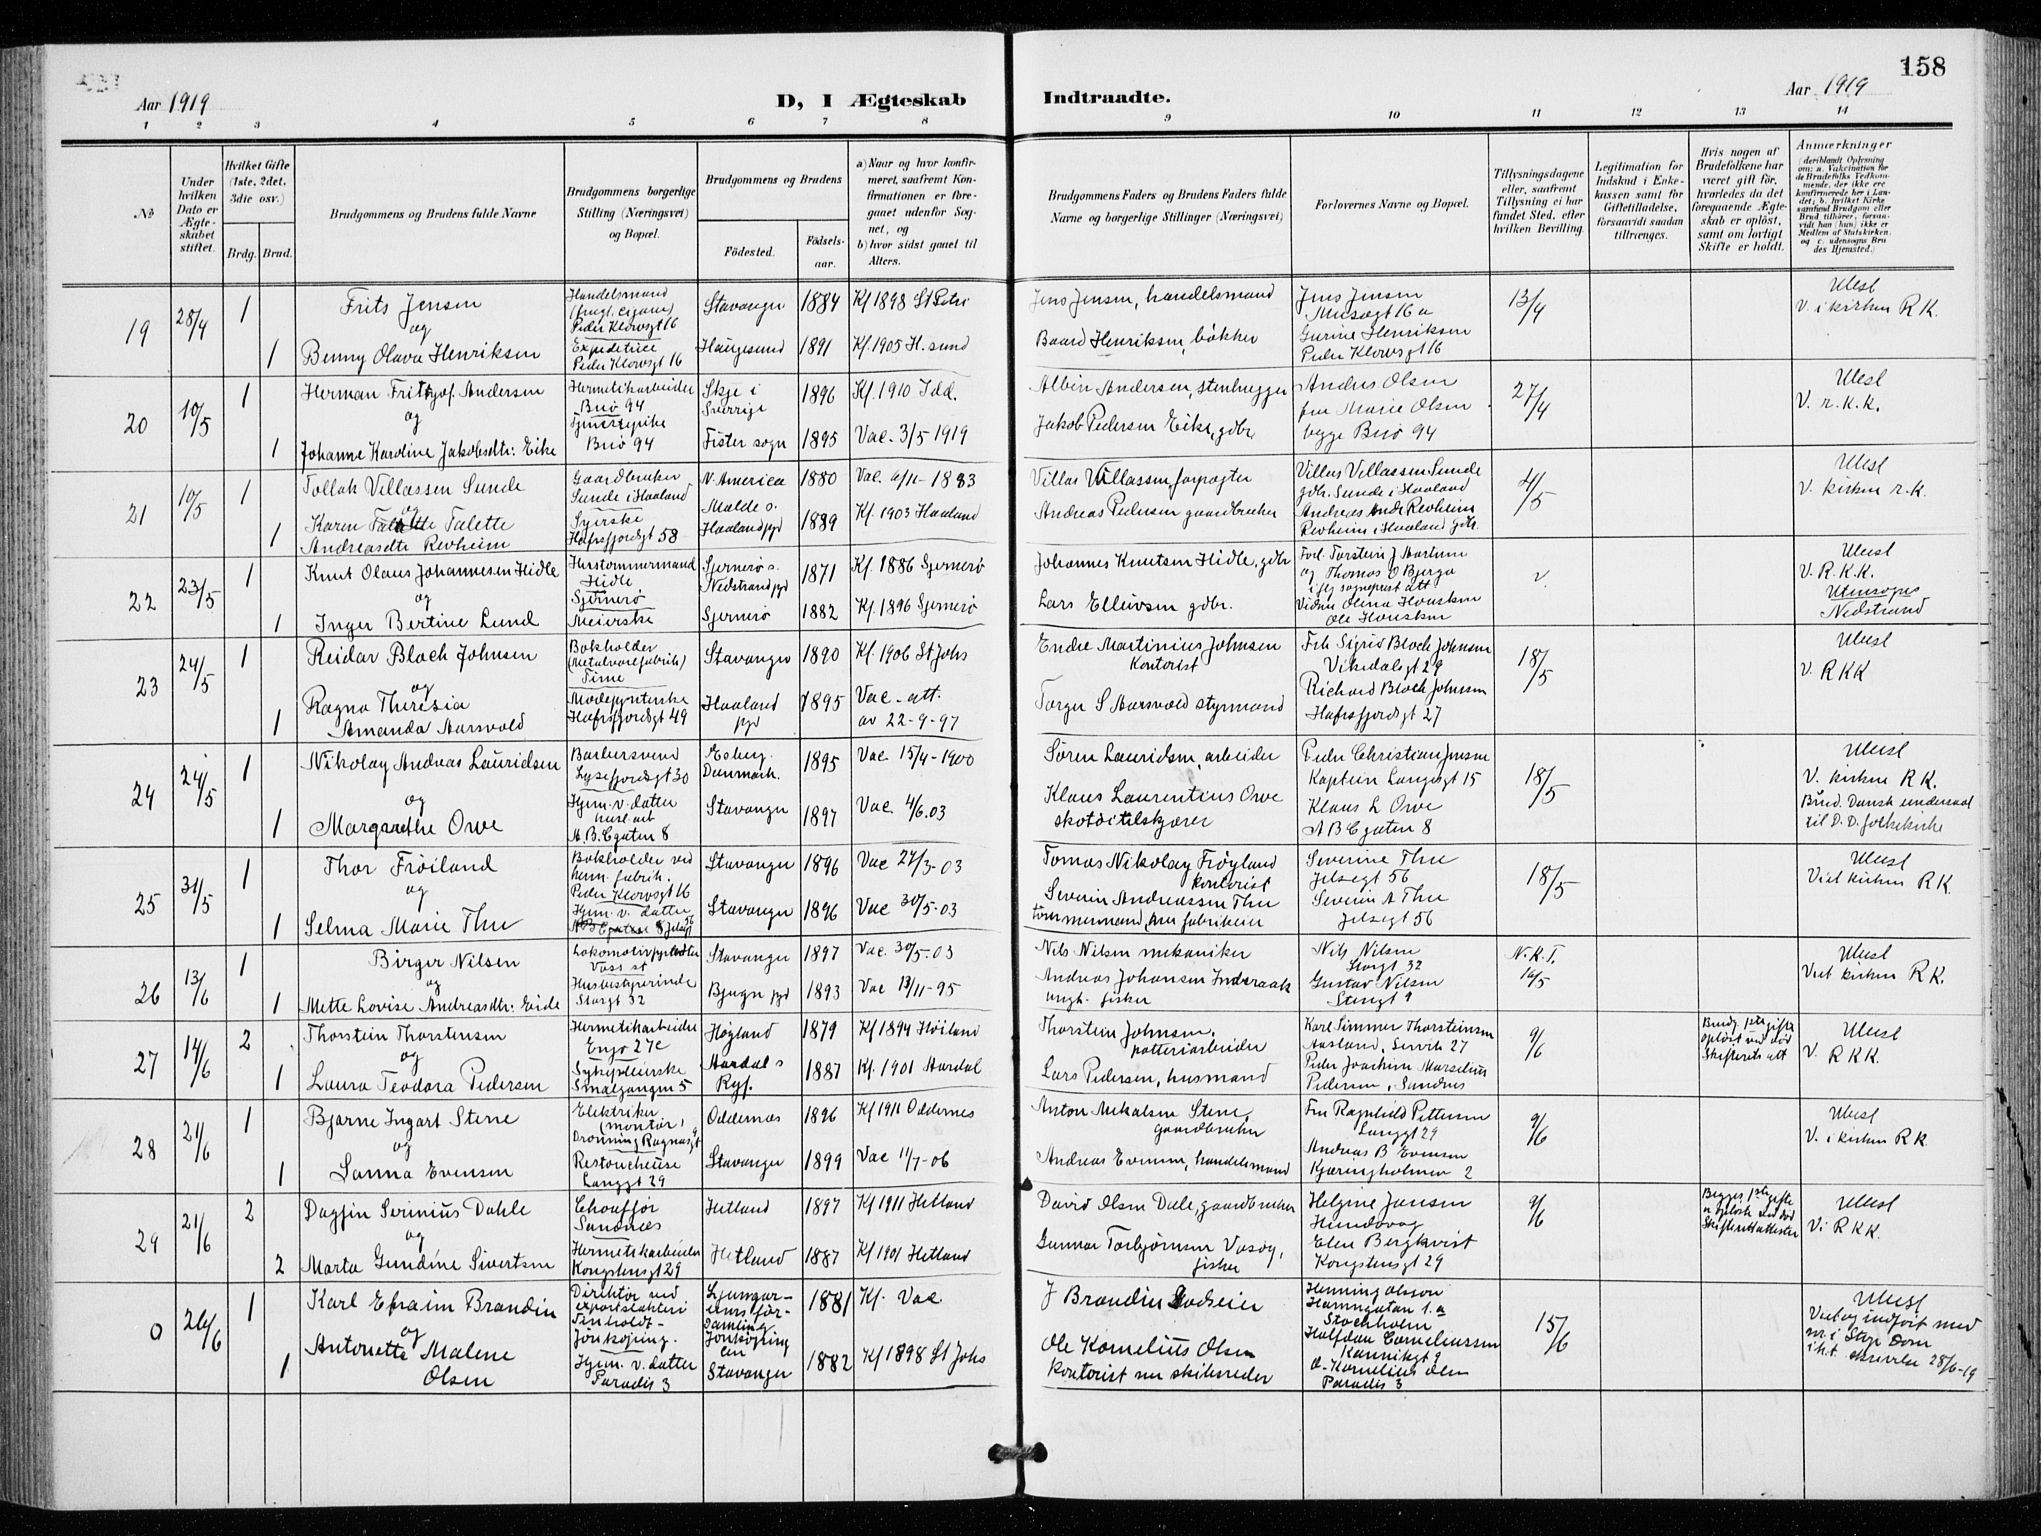 158
Aar 1919
D, I Ægteskab
Indtraadte.
Aar 1919
1 2 3 4 5 6 7 8 9 10 11 12 13 14
No
Under hvilken Dato er Ægteskabet stiftet.
Hvilket Gifte (1ste, 2det, 3die osv.)
Brdg. Brud.
Brudgommens og Brudens fulde Navne
Brudgommens borgerlige Stilling (Næringsvei) og Bopæl.
Brudgommens og Brudens
Födested.
Födselsaar.
a) Naar og hvor konfirmeret, saafremt Konfirmationen er foregaaet udenfor Sognet, og
b) hvor sidst gaaet til Alters.
Brudgommens Faders og Brudens Faders fulde Navne og borgerlige Stillinger (Næringsvei)
Forlovernes Navne og Bopæl.
Tillysningsdagene eller, saafremt Tillysning ei har fundet Sted, efter hvilken Bevilling.
Legitimation for Indskud i Enkekassen samt for Giftetilladelse, forsaavidt saadan tiltrænges.
Hvis nogen af Brudefolkene har været gift för, hvorledes da det foregaaende Ægteskab er oplöst, samt om lovligt Skifte er holdt.
Anmærkninger
19 28/4 1 Frits Jensen Handelsmand Stavanger 1884 Kf 1898 St Petri Jens Jensen, handelsmand Jens Jensen 13/4 Ulæst
og Peder Klowsgt 16 Musegt 16 a V. i kirken R K.
1 Benny Olava Henriksen Expeditrice Haugesund 1891 Kf. 1905 H.sund Baard Henriksen, bøkker Gurine Henriksen
Peder Klowsgt 16 Peder Klowsgt 16
20 10/5 1 Herman Fritjof Andersen Hermetikarbeider Skje i Sverrige 1896 Kf. 1910 Idd. Albin Andersen, stenhugger Andres Olsen 27/4 Ulæst
og Buø 94 fru Marie Olsen V. r.k.k.
1 Johanne Karoline Jakobsdtr: Eike Buø 94 Fister sogn 1895 Vac. 3/5 1919 Jakob Pedersen Eike, gdbr. begge Buø 94
21 10/5 1 Tollak Villassen Sunde Gaardbruker N. America 1880 Vac. 6/11-1883 Villas Villassen forpagter Villas Villassen Sunde 4/5 Ulæst
og Sunde i Haaland gdbr. Sunde i Haaland V. kirken r.k.
1 Karen Talette Syerske Malde s. Haaland pgd 1889 Kf. 1903 Haaland Andreas Pedersen gaardbruker Andreas Andr Revheim
Andreasdtr Revheim Hafrsfjordgt 58 Revheim i Haaland gdbr.
22 23/5 1 Knut Olaus Johannesen Hidle Hidle Sjernerø s. Nedstrand pgd 1871 Kf. 1886 Sjernerø Johannes Knutsen Hidle, gdbr Torstein J Aartun Ulæst
og Sjernerø og Thomas O Bjerga V. R.K.K.
1 Inger Bertine Lund Meierske Sjernerø 1882 Kf. 1896 Sjernerø Lars Ellivsen gdbr. Utensogns Nedstrand
23 24/5 1 Reidar Bloch Johnsen Bokholder (Metalvarefabrik) Stavanger 1890 Kf. 1906 St Johs Endre Martinius Johnsen Frk Sigrid Bloch Johnsen 18/5 Ulæst
og Time kontorist Vikedalsgt 29 V. RKK
1 Ragna Theresia Modepynterske Haaland pgd 1895 Vac. att. Torger S Aarsvold styrmand Richard Bloch Johnsen
Amanda Aarsvold Hafrsfjordsgt 49 av 22-9-97 Hafrsfjordsgt 27
24 24/5 1 Nikolay Andreas Lauridsen Barbersvend Esberg. Danmark. 1895 Vac 15/4-1900 Søren Lauridsen, arbeider Peder Christian Jensen 18/5 Ulæst
og Lysefjordsgt 30 Kaptein Langesgt 15 V. kirken R K.
1 Margarethe Orve Hjem. v. datter Stavanger 1897 Vac. 4/6.03 Klaus Laurentius Orve Klaus L Orve Brud. Dansk undersaat
A.B.C gaten 8 skotøitilskjærer A B C gaten 8 til D. D. folkekirke
25 31/5 1 Thor Frøiland Bokholder ved herm. fabrik. Stavanger 1896 Vac 27/3-03 Tomas Nikolay Frøyland Severine Thu 18/5 Ulæst
og Peder Klowsgt 16 kontorist Jelsegt 56 Viet kirken R K.
1 Selma Marie Thu Hjem. v. datter Stavanger 1896 Vac 30/5-03 Severin Andreassen Thu Severin A Thu
tømmermand Jelsegt 56
26 13/6 1 Birger Nilsen Voss st Stavanger 1897 Vac. 30/5-03 Nils Nilsen mekaniker Nils Nilsen N.K.T. Ulæst
og Storgt 32 16/5 Viet kirken R K.
1 Mette Lovise Andreasdtr: Eide Husbestyrerinde Storgt 32 Bjugn pgd 1893 Vac 13/11-95 Andreas Johansen fisker Gustav Nilsen
Stengt 9
27 14/6 2 Thorstein Thorstensen Hermetikarbeider Høyland 1879 Kf 1894 Høiland Thorstein Johnsen, Karl Simmer Thorsteinsen 9/6 Ulæst
og Engø 27c potteriarbeider Aasland, Servik 27 V. R K K.
1 Laura Teodora Pedersen Sykepleierske Aardal s Ryf. 1887 Kf. 1901 Aardal Lars Pedersen, husmand Peder Joachim Marselius
Smalgangen 5 Pedersen, Sandnes
28 21/6 1 Bjarne Ingart Stene Elektriker (montør) Oddernæs 1896 Kf 1911 Oddernes Anton Mikalsen Stene, Fru Ragnhild Pettersen 9/6 Ulæst
og Dronning Ragnasgt 9 gaardbruker Langgt 29 V. i kirken R K.
1 Sanna Evensen Retoucheuse Stavanger 1899 Vac 11/7-06 Andreas Evensen, handelsmand Andreas B Evensen
Langgt 29 Kjæringholmen 2
29 21/6 2 Dagfin Serinius Dahle Chouffør Hetland 1897 Kf 1911 Hetland David Olsen Dale, gaardbruker Helgine Jansen 9/6 Ulæst
og Sandnæs Hundvaag Vi R K K.
2 Marta Gundine Sivertsen Hermetikarbeider Hetland 1887 Kf 1901 Hetland Gunnar Torbjørnsen Vasøy, Elen Bergkvist
Kongstensgt 29 fisker Kongstensgt 29
0 26/6 1 Karl Efraim Brandin Direktør ved exportslakteri 1881 Kf. Vac J Brandin Godseier Henning Olsson 15/6 Ulæst
og Jönköping. Hamngatan 1.a Stockholm Viet og indført med
1 Antonette Malene Hjem. v. datter Stavanger 1882 Kf 1898 St Johs Ole Kornelius Olsen Halfdan Corneliussen nr. i Stvgr Dom
Olsen Paradis 3 kontorist Kannikgt 9 28/6-19
O. Kornelius Olsen
Paradis 3